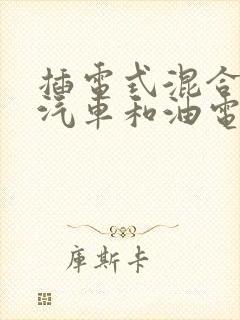 插電式混合
汽車和油電
庫斯卡